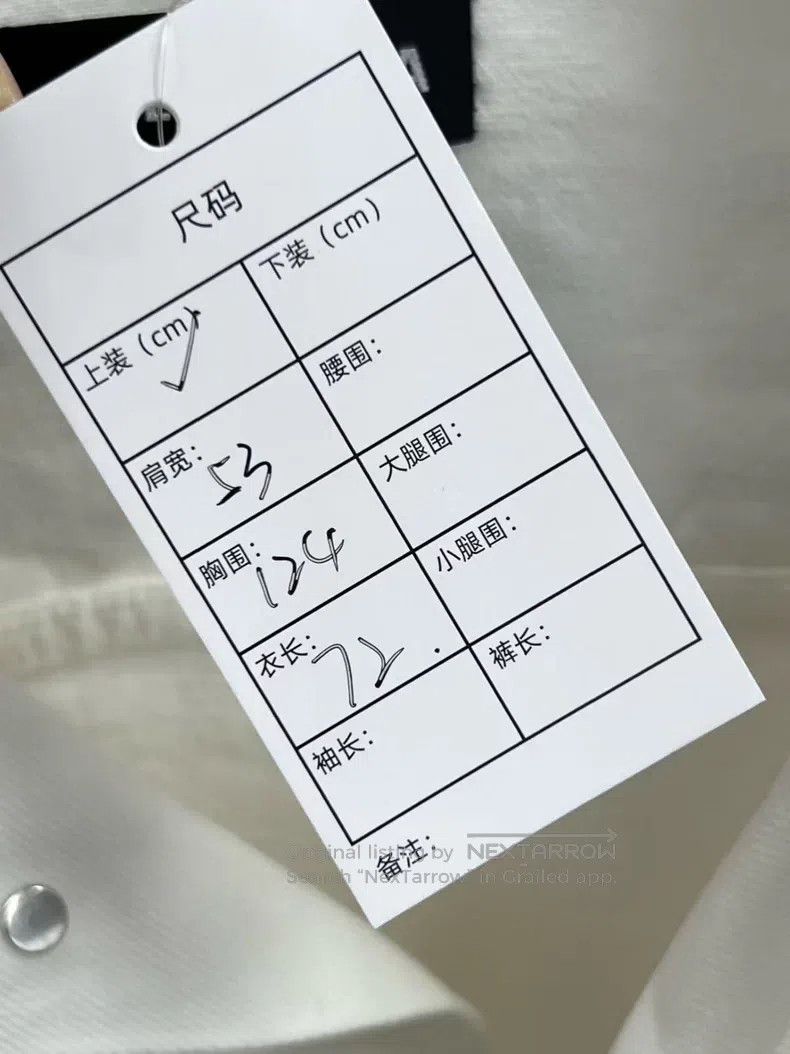 尺码
上装（cm） 下装（cm）
✓
肩宽：53 腰围：
胸围：124 大腿围：
衣长：72. 小腿围：
袖长： 裤长：
备注：
Original listing by NEXTARROW
Search "NexTarrow" in Grailed app.